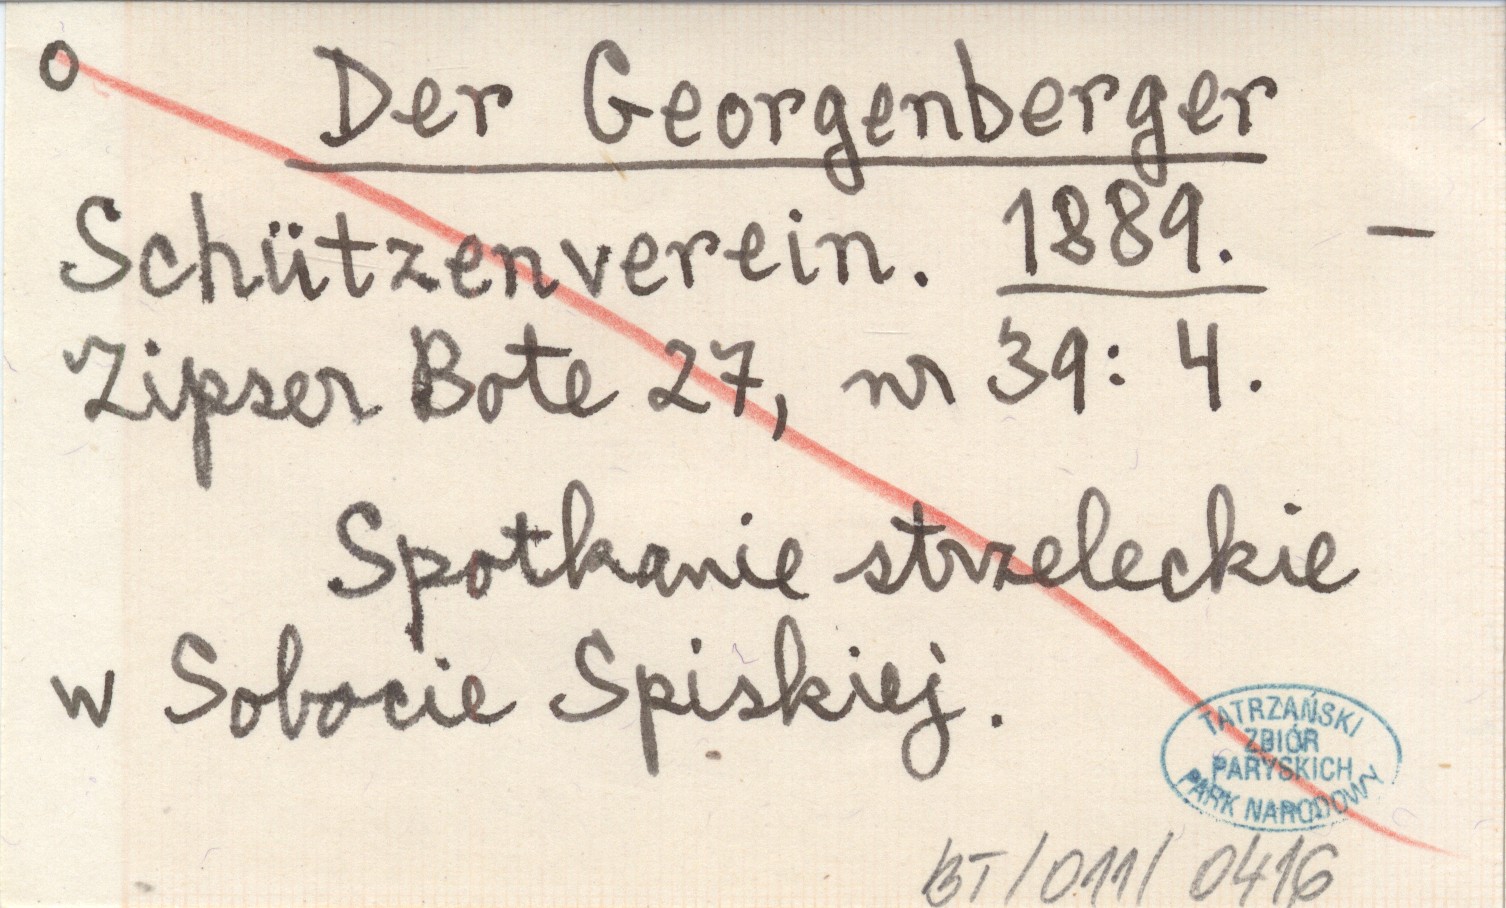 o Der Georgenberger
Schützenverein. 1889. —
Zipser Bote 27, nr 39: 4.
Spotkanie strzeleckie
w Sobocie Spiskiej.
TATRZAŃSKI
ZBIÓR
PARYSKICH
PARK NARODOWY
BT/011/ 0416